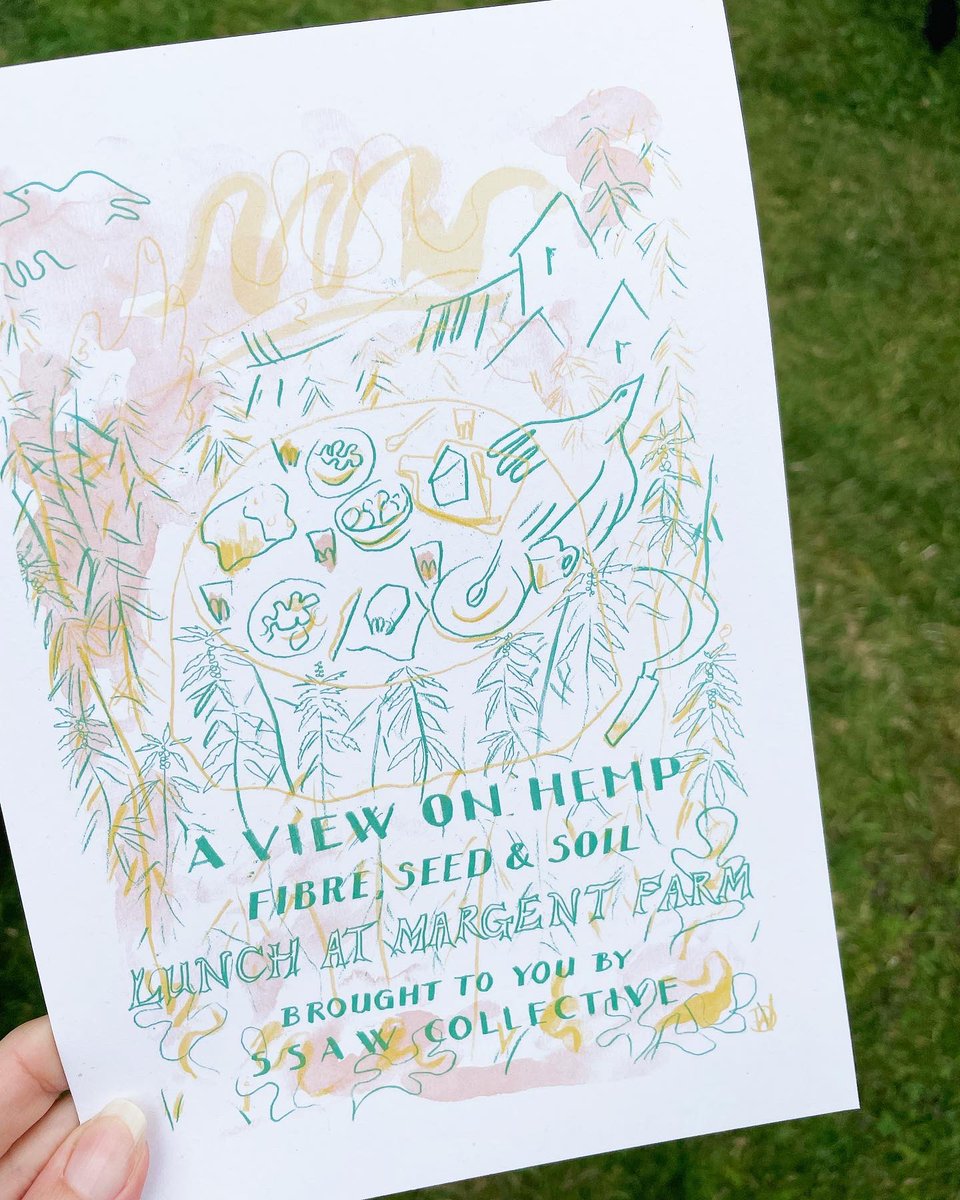 A VIEW ON HEMP
FIBRE, SEED & SOIL
LUNCH AT MARGENT FARM
BROUGHT TO YOU BY
SSAW COLLECTIVE